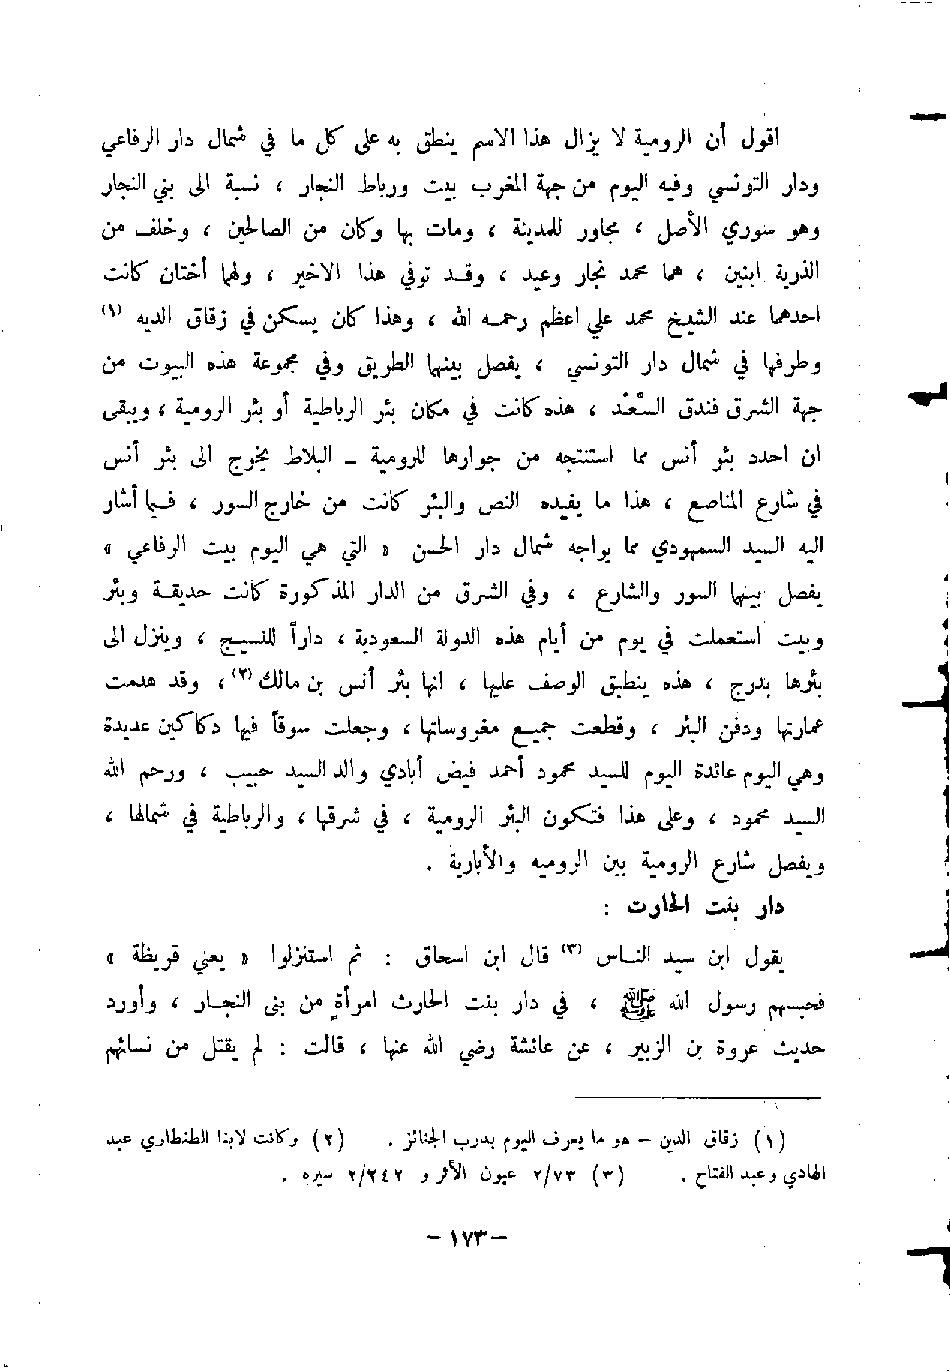 اقول أن الرومية لا يزال هذا الاسم ينطق به على كل ما في شمال دار الرفاعي
ودار التونسي وفيه اليوم من جهة المغرب بيت ورباط النجار ، نسبة الى بني النجار
وهو سنوري الأصل ، مجاور للمدينة ، ومات بها وكان من الصالحين ، وخلف من
الذرية ابنين ، هما محمد نجار وعيد ، وقد توفي هذا الاخير ، ولهما أختان كانت
احدهما عند الشيخ محمد علي اعظم رحمه الله ، وهذا كان يسكن في زقاق الديه (١)
وطرفها في شمال دار التونسي ، يفصل بينهما الطريق وفي مجموعة هذه البيوت من
جهة الشرق فندق السَّعْد ، هذه كانت في مكان بئر الرباطية أو بئر الرومية ، ويبقى
ان احدد بئر أنس مما استنتجه من جوارها للرومية ـ البلاط يخوج الى بئر أنس
في شارع المناصع ، هذا ما يفيده النص والبئر كانت من خارج السور ، فيما أشار
اليه السيد السمهودي مما يواجه شمال دار الحسن « التي هي اليوم بيت الرفاعي »
يفصل بينهما السور والشارع ، وفي الشرق من الدار المذكورة كانت حديقة وبئر
وبيت استعملت في يوم من أيام هذه الدولة السعودية ، داراً للنسيج ، وينزل الى
بئرها بدرج ، هذه ينطبق الوصف عليها ، انها بئر أنس بن مالك (٢) ، وقد هدمت
عمارتها ودفن البئر ، وقطعت جميع مغروساتها ، وجعلت سوقاً فيها دكاكين عديدة
وهي اليوم عائدة اليوم للسيد محمود أحمد فيض أبادي والد السيد حبيب ، ورحم الله
السيد محمود ، وعلى هذا فتكون البئر الرومية ، في شرقها ، والرباطية في شمالها ،
ويفصل شارع الرومية بين الروميه والأبارية .
دار بنت الحارث :
يقول ابن سيد الناس (٣) قال ابن اسحاق : ثم استنزلوا « يعني قريظة »
فحبسهم رسول الله ﷺ ، في دار بنت الحارث امرأةٍ من بنى النجار ، وأورد
حديث عروة بن الزبير ، عن عائشة رضي الله عنها ، قالت : لم يقتل من نسائهم
(١) زقاق الدين ـ هو ما يعرف اليوم بدرب الجنائز . (٢) وكانت لابنا الطنطاري عبد
الهادي وعبد الفتاح . (٣) ٢/٧٣ عيون الأثر و ٢/٢٤٢ سيره .
- ١٧٣ -